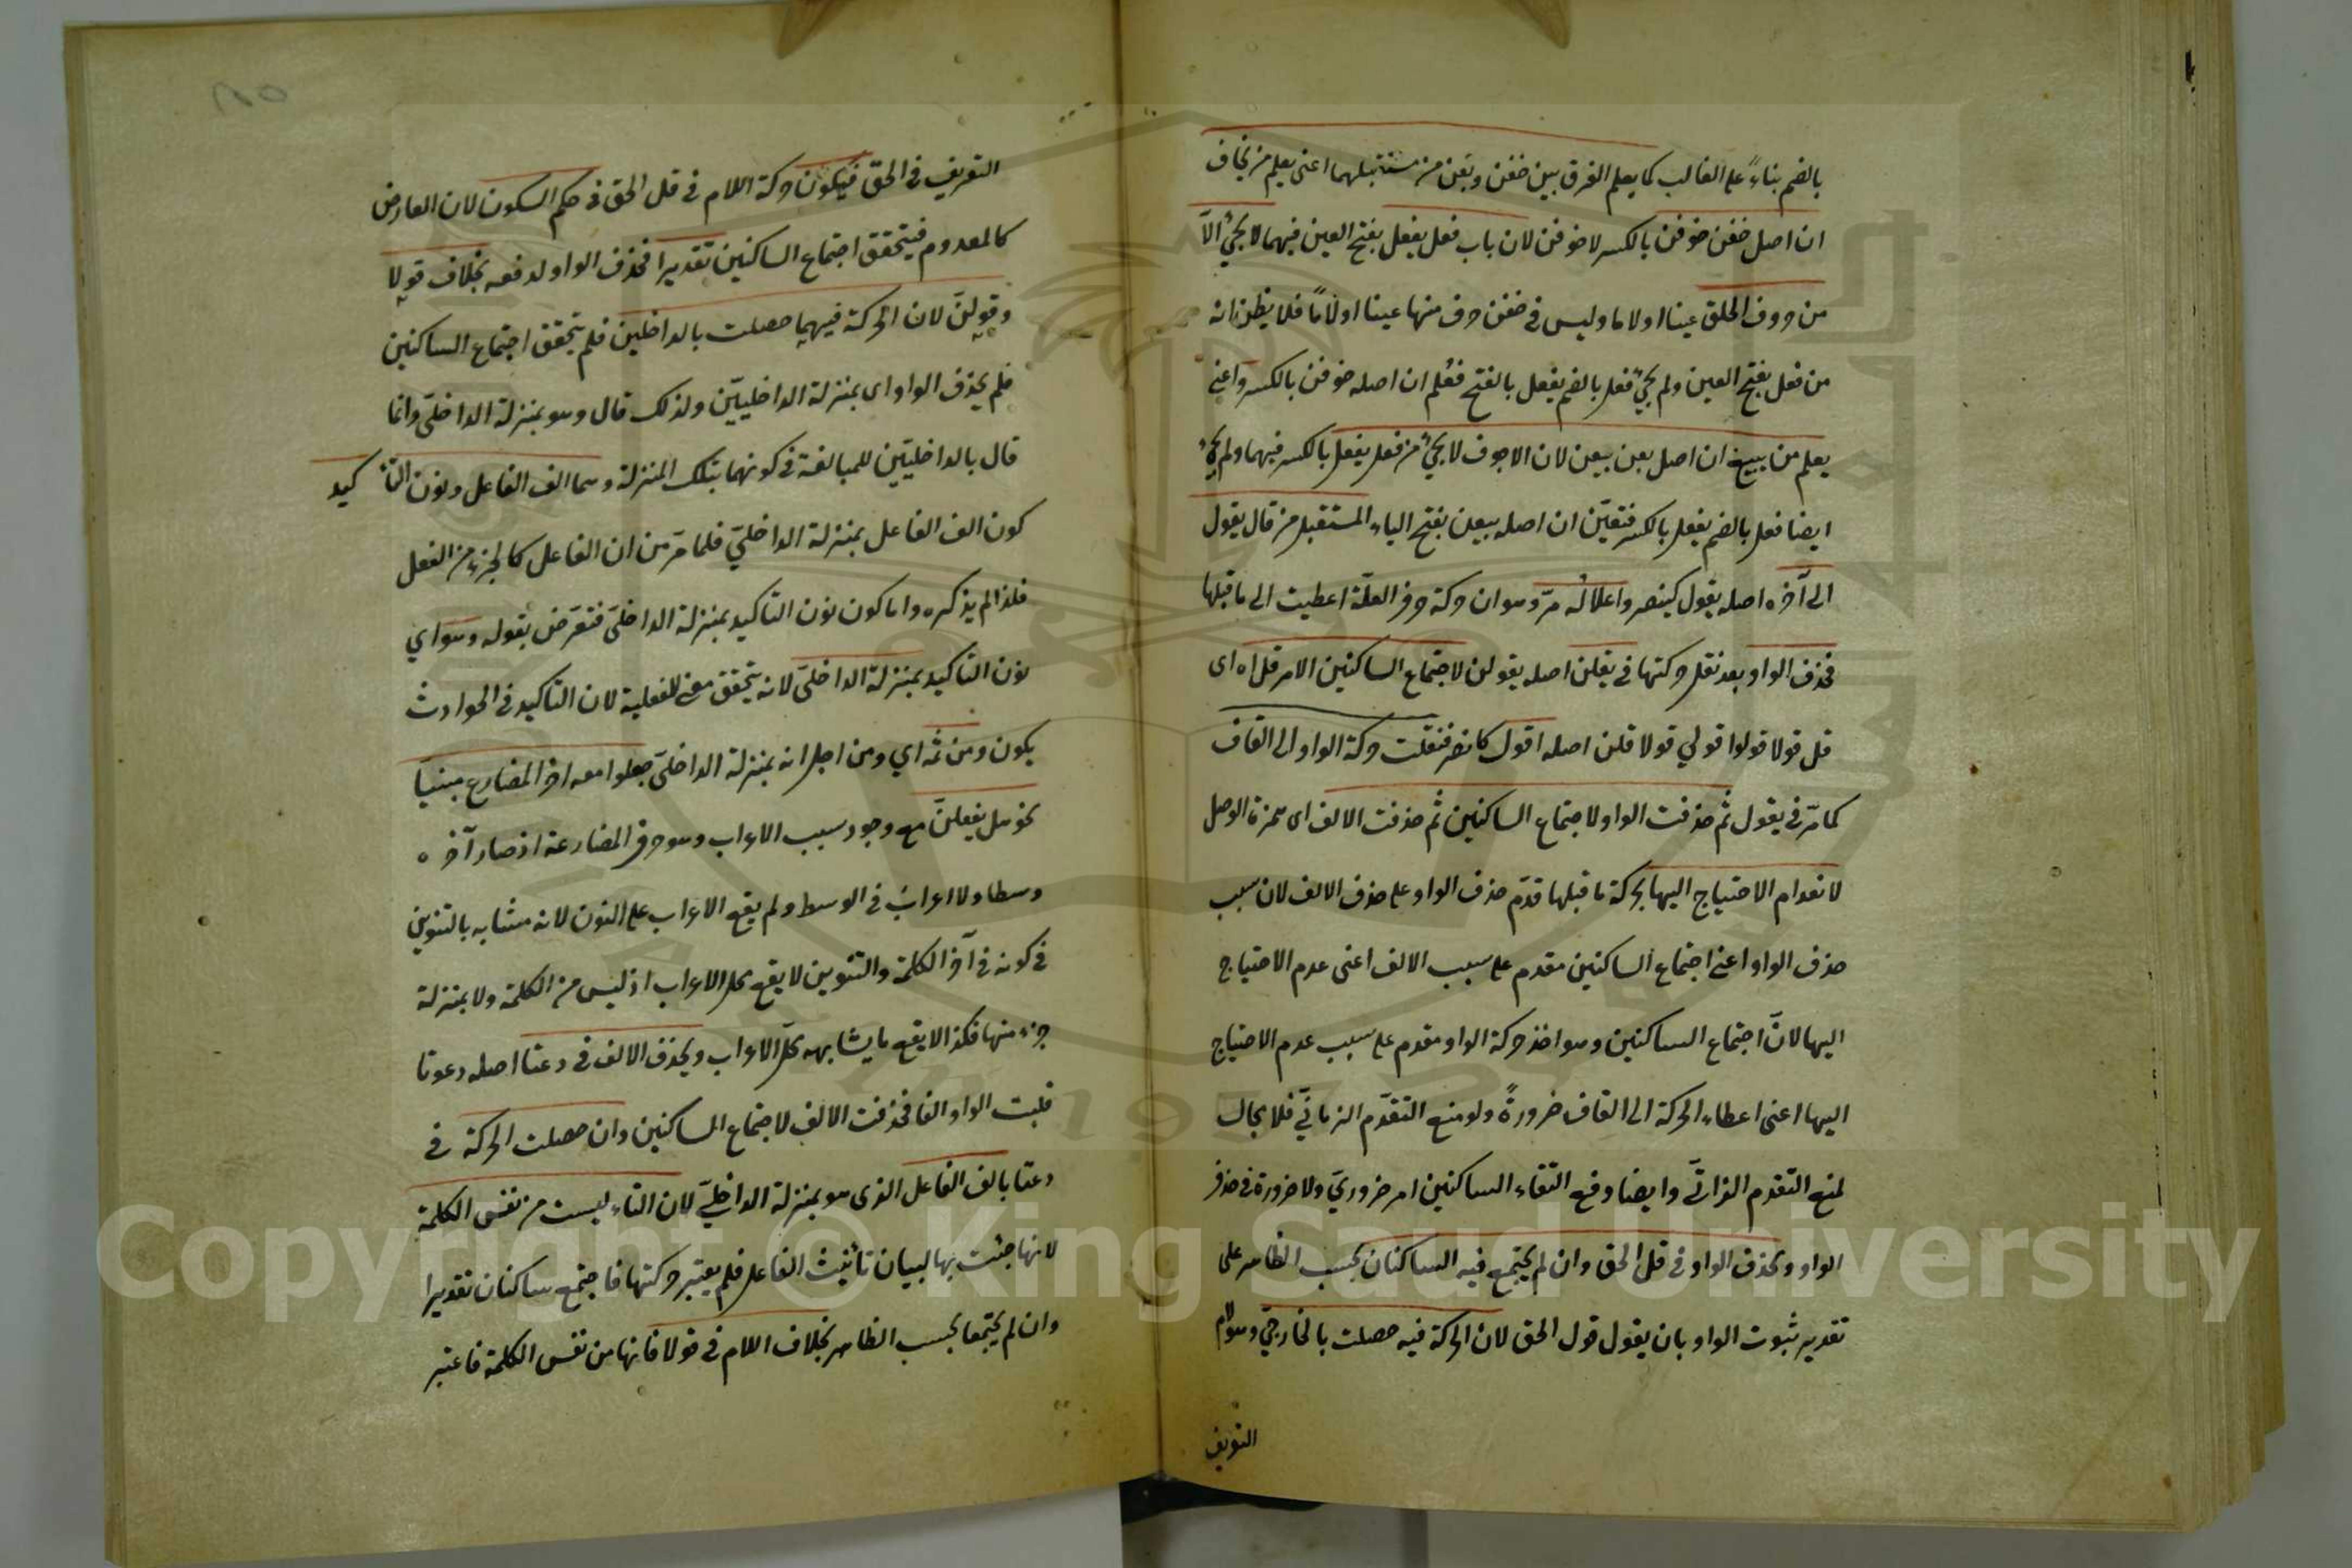 بالضم بناءً على الغالب كما يعلم الفرق بين خفن وبعن من مستقبلهما اعنى يعلم من يخاف
ان اصل خفن خوفن بالكسر لا خوفن لان باب فعل يفعل بفتح العين فيهما لا يجئ الّا
من حروف الحلق عينا او لاما وليس فى خفن حرف منها عينا او لامًا فلا يظن انه
من فعل بفتح العين ولم يجئ فعل بالضم يفعل بالفتح فعُلم ان اصله خوفن بالكسر واعنى
يعلم من يبيع ان اصل بعن بيعن لان الاجوف لا يجئ من فعل يفعل بالكسر فيهما ولم يجئ
ايضا فعل بالضم يفعل بالكسر فتعيّن ان اصله بيعن بفتح الياء المستقبل من قال يقول
الى آخره اصله يقول كينصر واعلاله مرّ وهو ان حركة حرف العلّة اعطيت الى ما قبلها
فحذف الواو بعد نقل حركتها فى يقلن اصله يقولن لاجتماع الساكنين الامر قل اه اى
قل قولا قولوا قولي قولا قلن اصله اقول كانصر فنقلت حركة الواو الى القاف
كما مرّ فى يقول ثم حذفت الواو لاجتماع الساكنين ثم حذفت الالف اى همزة الوصل
لانعدام الاحتياج اليها بحركة ما قبلها قدّم حذف الواو على حذف الالف لان سبب
حذف الواو اعنى اجتماع الساكنين مقدم على سبب الالف اعنى عدم الاحتياج
اليها لانّ اجتماع الساكنين وهو اخذ حركة الواو مقدم على سبب عدم الاحتياج
اليها اعنى اعطاء الحركة الى القاف ضرورةً ولو منع التقدّم الزمانيّ فلا مجال
لمنع التقدم الذاتىّ وايضا دفع التقاء الساكنين امر ضروريّ ولا ضرورة فى حذف
الواو ويحذف الواو فى قل الحق وان لم يجتمع فيه الساكنان بحسب الظاهر على
تقدير ثبوت الواو بان يقول قول الحق لان الحركة فيه حصلت بالخارجيّ وهو لام
التعريف
التعريف فى الحقّ فيكون حركة اللام فى قل الحق فى حكم السكون لان العارض
كالمعدوم فيتحقق اجتماع الساكنين تقديرا فحذف الواو لدفعه بخلاف قولا
وقولنّ لان الحركة فيهما حصلت بالداخلين فلم يتحقق اجتماع الساكنين
فلم يحذف الواو اى بمنزلة الداخليّين ولذلك قال وهو بمنزلة الداخلىّ وانما
قال بالداخليّين للمبالغة فى كونهما بتلك المنزلة وهما الف الفاعل ونون التأكيد
كون الف الفاعل بمنزلة الداخليّ فلما مرّ من ان الفاعل كالجزء من الفعل
فلذا لم يذكره واما كون نون التاكيد بمنزلة الداخلىّ فتعرّض بقوله وهو اي
نون التاكيد بمنزلة الداخلىّ لانه يتحقق معنى للفعلية لان التاكيد فى الحوادث
يكون ومن ثمه اي ومن اجل انه بمنزلة الداخلىّ جعلوا معه آخر المضارع مبنيّا
نحو هل يفعلنّ مع وجود سبب الاعراب وهو حرف المضارعة اذ صار آخره
وسطا ولا اعراب فى الوسط ولم يقع الاعراب على النون لانه مشابه بالتنوين
فى كونه فى آخر الكلمة والتنوين لا يقع محل الاعراب اذ ليس من الكلمة ولا بمنزلة
جزء منها فكذا لا يقع ما يشابهه محل الاعراب ويحذف الالف فى دعتا اصله دعوتا
قلبت الواو الفا فحذفت الالف لاجتماع الساكنين وان حصلت الحركة فى
دعتا بالف الفاعل الذى هو بمنزلة الداخليّ لان التاء ليست من نفس الكلمة
لانها جئت بها لبيان تأنيث الفاعل فلم يعتبر حركتها فاجتمع ساكنان تقديرا
وان لم يجتمعا بحسب الظاهر بخلاف اللام فى قولا فانها من نفس الكلمة فاعتبر
Copyright © King Saud University